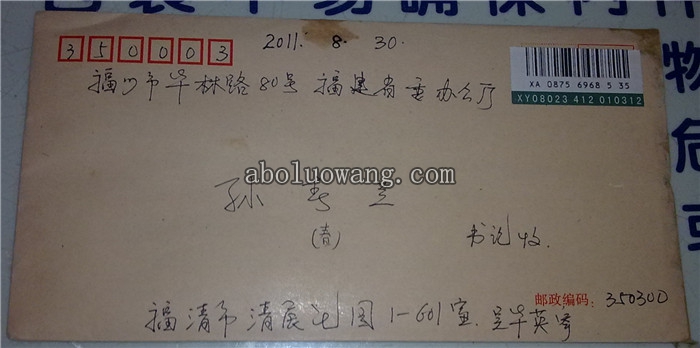 350003 2011. 8. 30.
福州市华林路80号 福建省委办公厅
XA 0875 6968 5 35
XY08023 412 010312
aboluowang.com
孙春兰
(春)
书记 收.
邮政编码: 350300
福清市清展花园1-601室.